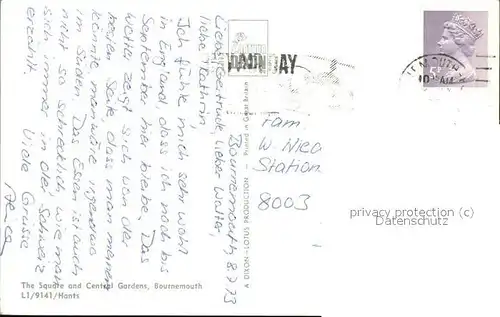 Bournemouth 8.9.73
Liebe Gertrude, lieber Walter,
liebe Kathrin,
Ich fühle mich sehr wohl
in England, dass ich noch bis
September hier bleibe. Das
Wetter zeigt sich von der
besten Seite, dass man meinen
könnte man wäre irgendwo
im Süden. Das Essen ist auch
nicht so schrecklich wie man
sich immer in der Schweiz
erzählt.
Viele Grüsse
Fam.
W. Nico
Station
8003
A DIXON-LOTUS PRODUCTION - Printed in Great Britain
The Square and Central Gardens, Bournemouth
L1/9141/Hants
privacy protection (c)
www.oldthing.de